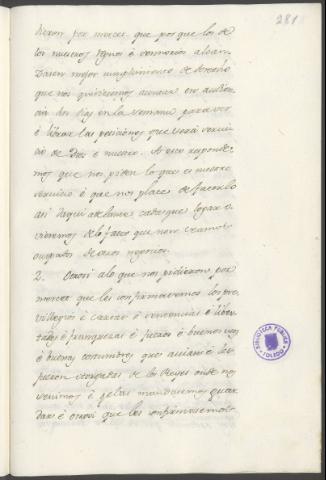 281
dieron por merced que por que los de
los nuestros regnos é sennorios alcan
zasen mejor cumplimiento de derecho
que nos quisiesemos asentar en audien
cia dos dias en la semana para ver
é librar las peticiones que será servi
cio de Dios é nuestro. A esto responde
mos que nos piden lo que es nuestro
servicio é que nos place de facerlo
asi daqui adelante cada que logar o
vieremos de lo facer que non seamos
ocupados de otros negocios.
2. Otrosi a lo que nos pidieron por
merced que les confirmasemos los pre
villegios é cartas é sentencias é liber
tades é franquezas é fueros é buenos usos
é buenas costumbres que avian é les
fueron otorgadas de los Reyes onde nos
venimos é gelas mandasemos guar
dar é otrosi que les confirmasemos
BIBLIOTECA PUBLICA
TOLEDO